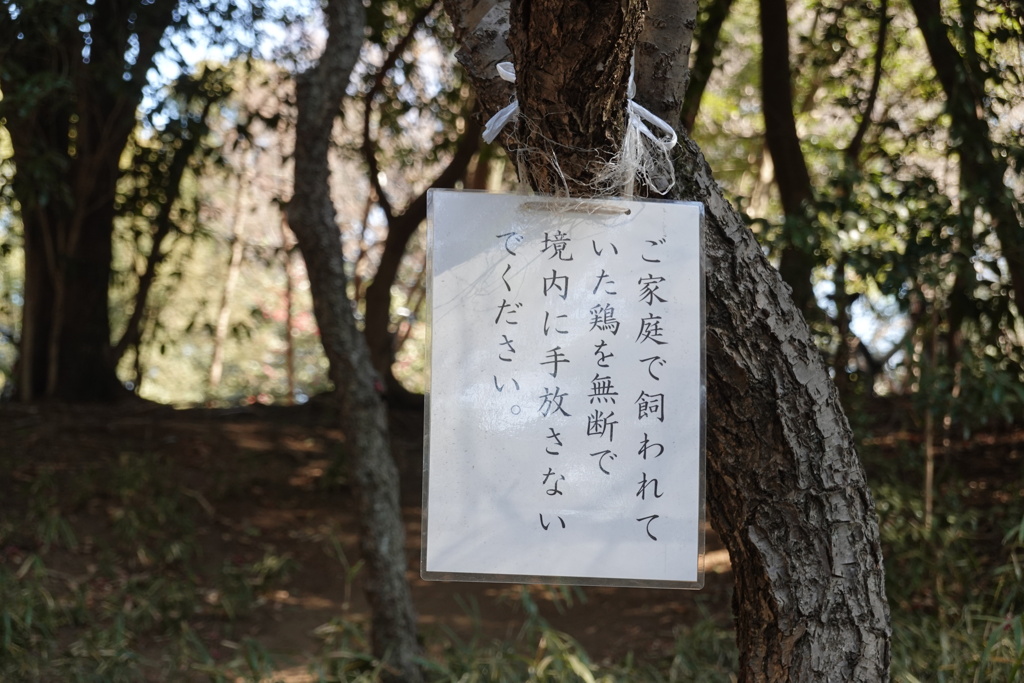 ご家庭で飼われて
いた鶏を無断で
境内に手放さない
でください。